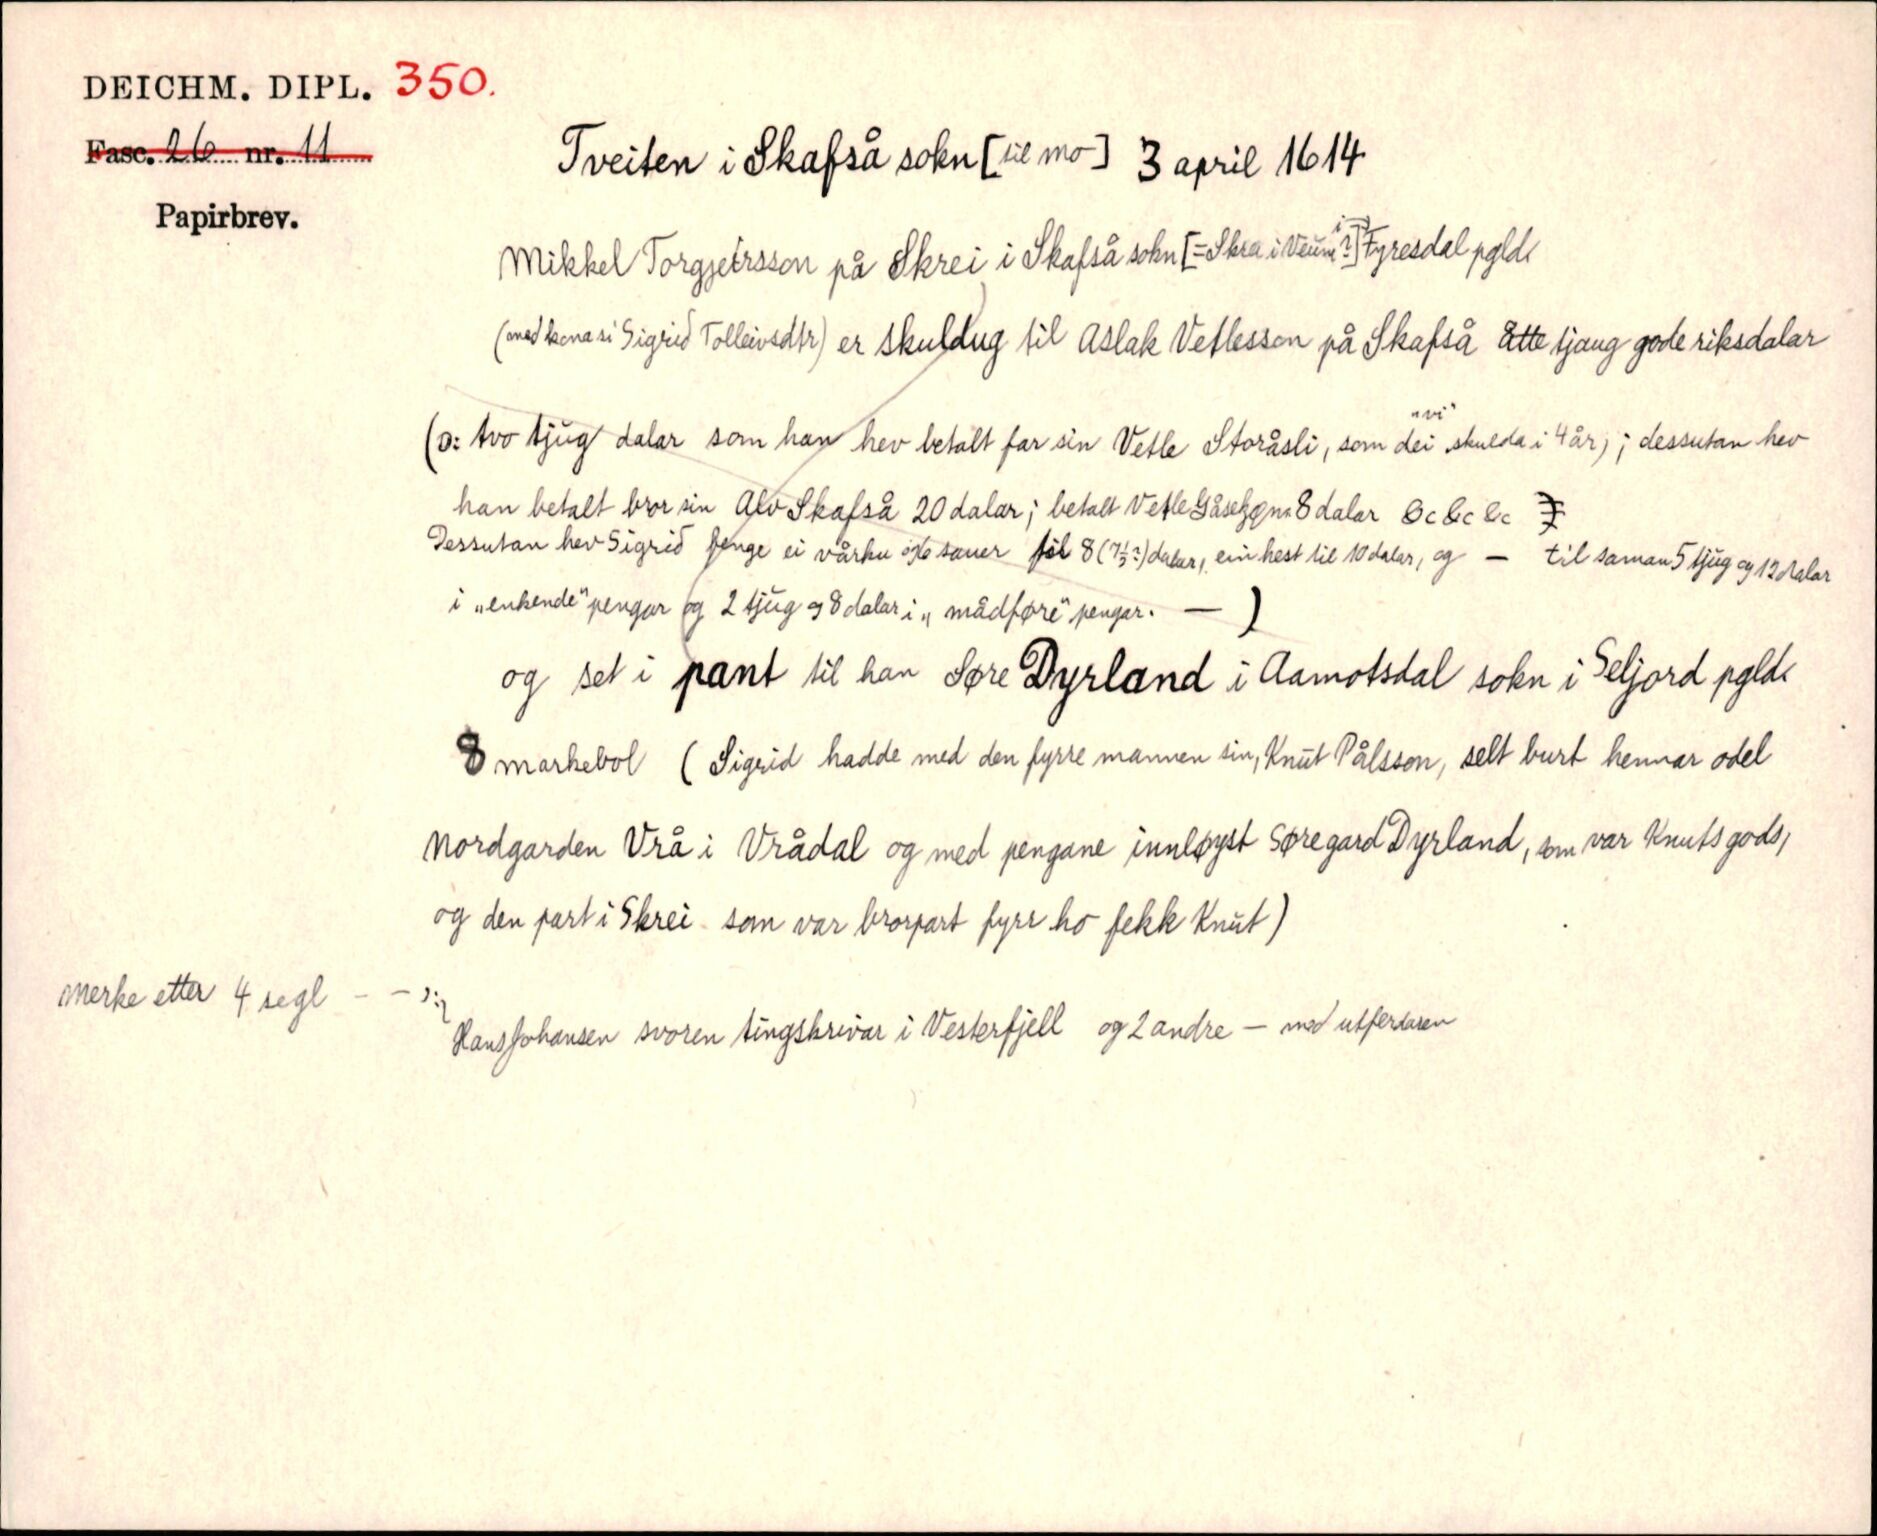 DEICHM. DIPL. 350.
Fasc. 26 nr. 11
Papirbrev.
Tveiten i Skafså sokn [til Mo] 3 april 1614
Mikkel Torgjeirsson på Skrei i Skafså sokn [=Skra i Veum i ?] Fyresdal pgld.
(med kona si Sigrid Tolleivsdtr) er skuldug til Aslak Vetlesson på Skafså åtte tjaug gode riksdalar
(ɔ: tvo tjug dalar som han hev betalt far sin Vetle Storåsli, som dei „vi" skulda i 4 år) ; dessutan hev
han betalt bror sin Alv Skafså 20 dalar; betalt Vetle 8 dalar &c &c &c
Dessutan hev Sigrid fenge ei vårku og 6 sauer til 8 (7½?) dalar, ein hest til 10 dalar, og — til saman 5 tjug og 12 dalar
i „enkende" pengar og 2 tjug og 8 dalar i „mådføre" pengar. — )
og set i pant til han Søre Dyrland i Aamotsdal sokn i Seljord pgld.
8 markebol ( Sigrid hadde med den fyrre mannen sin, Knut Pålsson, selt burt hennar odel
Nordgarden Vrå i Vrådal og med pengane innløyst Søregard Dyrland, som var Knuts gods,
og den part i Skrei som var brorpart fyrr ho fekk Knut)
Merke etter 4 segl - - ɔ:
Hans Johansen svoren tingskrivar i Vesterfjell og 2 andre — med utferdaren